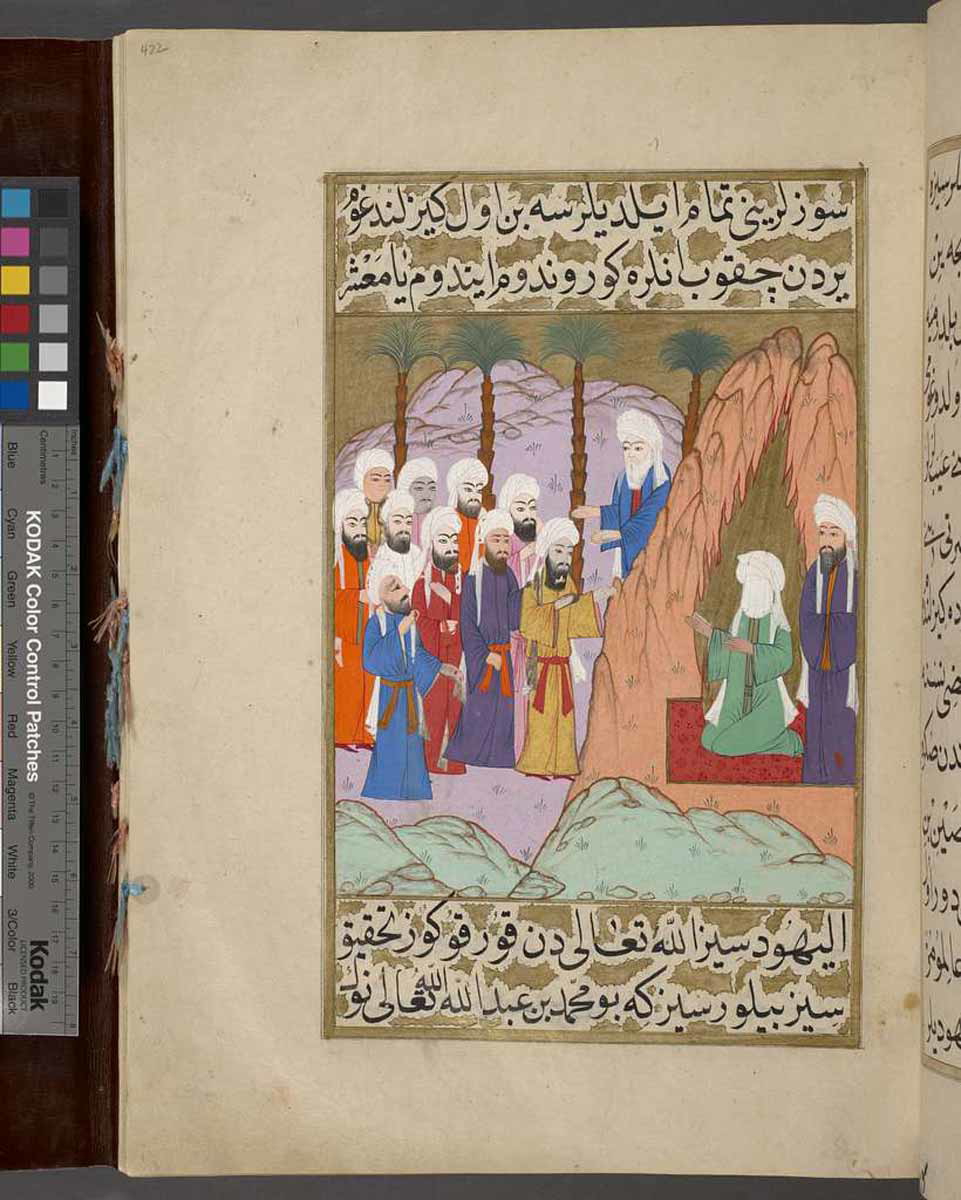 422
سوزلرینی تمام ایلدیلرسه بن اول کیزلندغوم
یردن چقوب انلره کوروندوم ایندوم یا معشر
الیهود سیز الله تعالی دن قورقوکوز تحقیق
سیز بیلورسیز که بو محمد بن عبد الله الله تعالی نوک
KODAK Color Control Patches
© The Tiffen Company, 2000
Kodak
LICENSED PRODUCT
Inches
Centimetres
Blue
Cyan
Green
Yellow
Red
Magenta
White
3/Color
Black